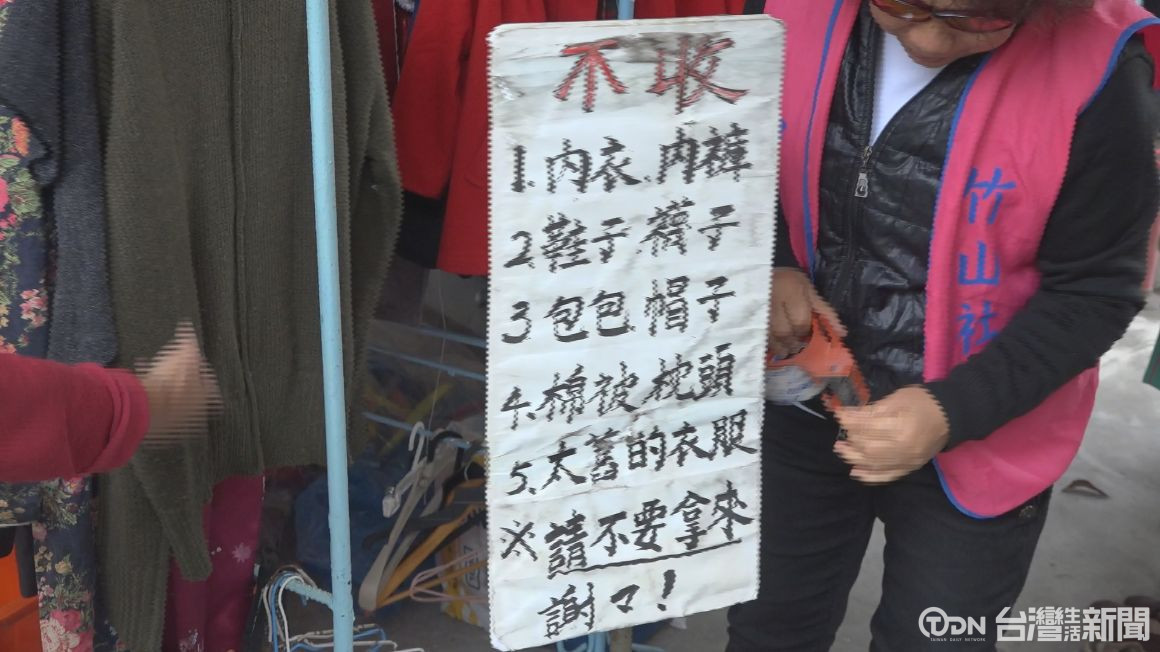 不收
1.內衣.內褲
2.鞋子.襪子
3包包.帽子
4.棉被枕頭
5.太舊的衣服
※請不要拿來
謝々!
竹山社
TDN 台灣生活新聞
TAIWAN DAILY NETWORK